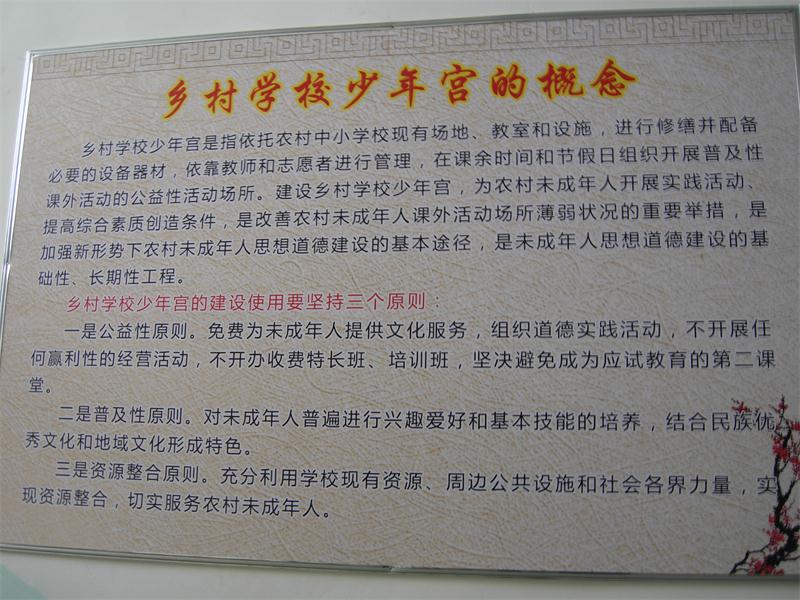 乡村学校少年宫的概念
乡村学校少年宫是指依托农村中小学校现有场地、教室和设施，进行修缮并配备
必要的设备器材，依靠教师和志愿者进行管理，在课余时间和节假日组织开展普及性
课外活动的公益性活动场所。建设乡村学校少年宫，为农村未成年人开展实践活动、
提高综合素质创造条件，是改善农村未成年人课外活动场所薄弱状况的重要举措，是
加强新形势下农村未成年人思想道德建设的基本途径，是未成年人思想道德建设的基
础性、长期性工程。
乡村学校少年宫的建设使用要坚持三个原则：
一是公益性原则。免费为未成年人提供文化服务，组织道德实践活动，不开展任
何赢利性的经营活动，不开办收费特长班、培训班，坚决避免成为应试教育的第二课
堂。
二是普及性原则。对未成年人普遍进行兴趣爱好和基本技能的培养，结合民族优
秀文化和地域文化形成特色。
三是资源整合原则。充分利用学校现有资源、周边公共设施和社会各界力量，实
现资源整合，切实服务农村未成年人。